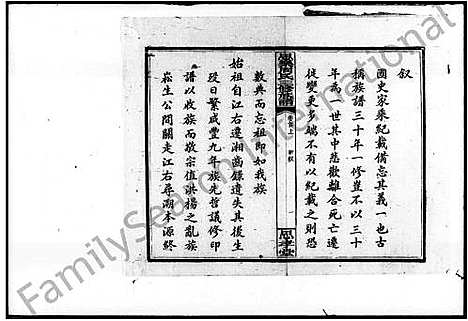 叙
國史家乘紀載備忘其義一也古
稱族譜三十年一修豈不以三十
年為一世其中悲歡離合死亡遷
徙變更多端不有以紀載之則恐
氏三修族譜
卷首上 新叙
思孝堂
數典而忘祖即如我族
始祖自江右遷湘齒錄遺失其後生
歿日繁咸豐九年族先哲議修印
譜以收族而敬宗值洪楊之亂族
崧生公間關走江右尋溯本源終
FamilySearch International